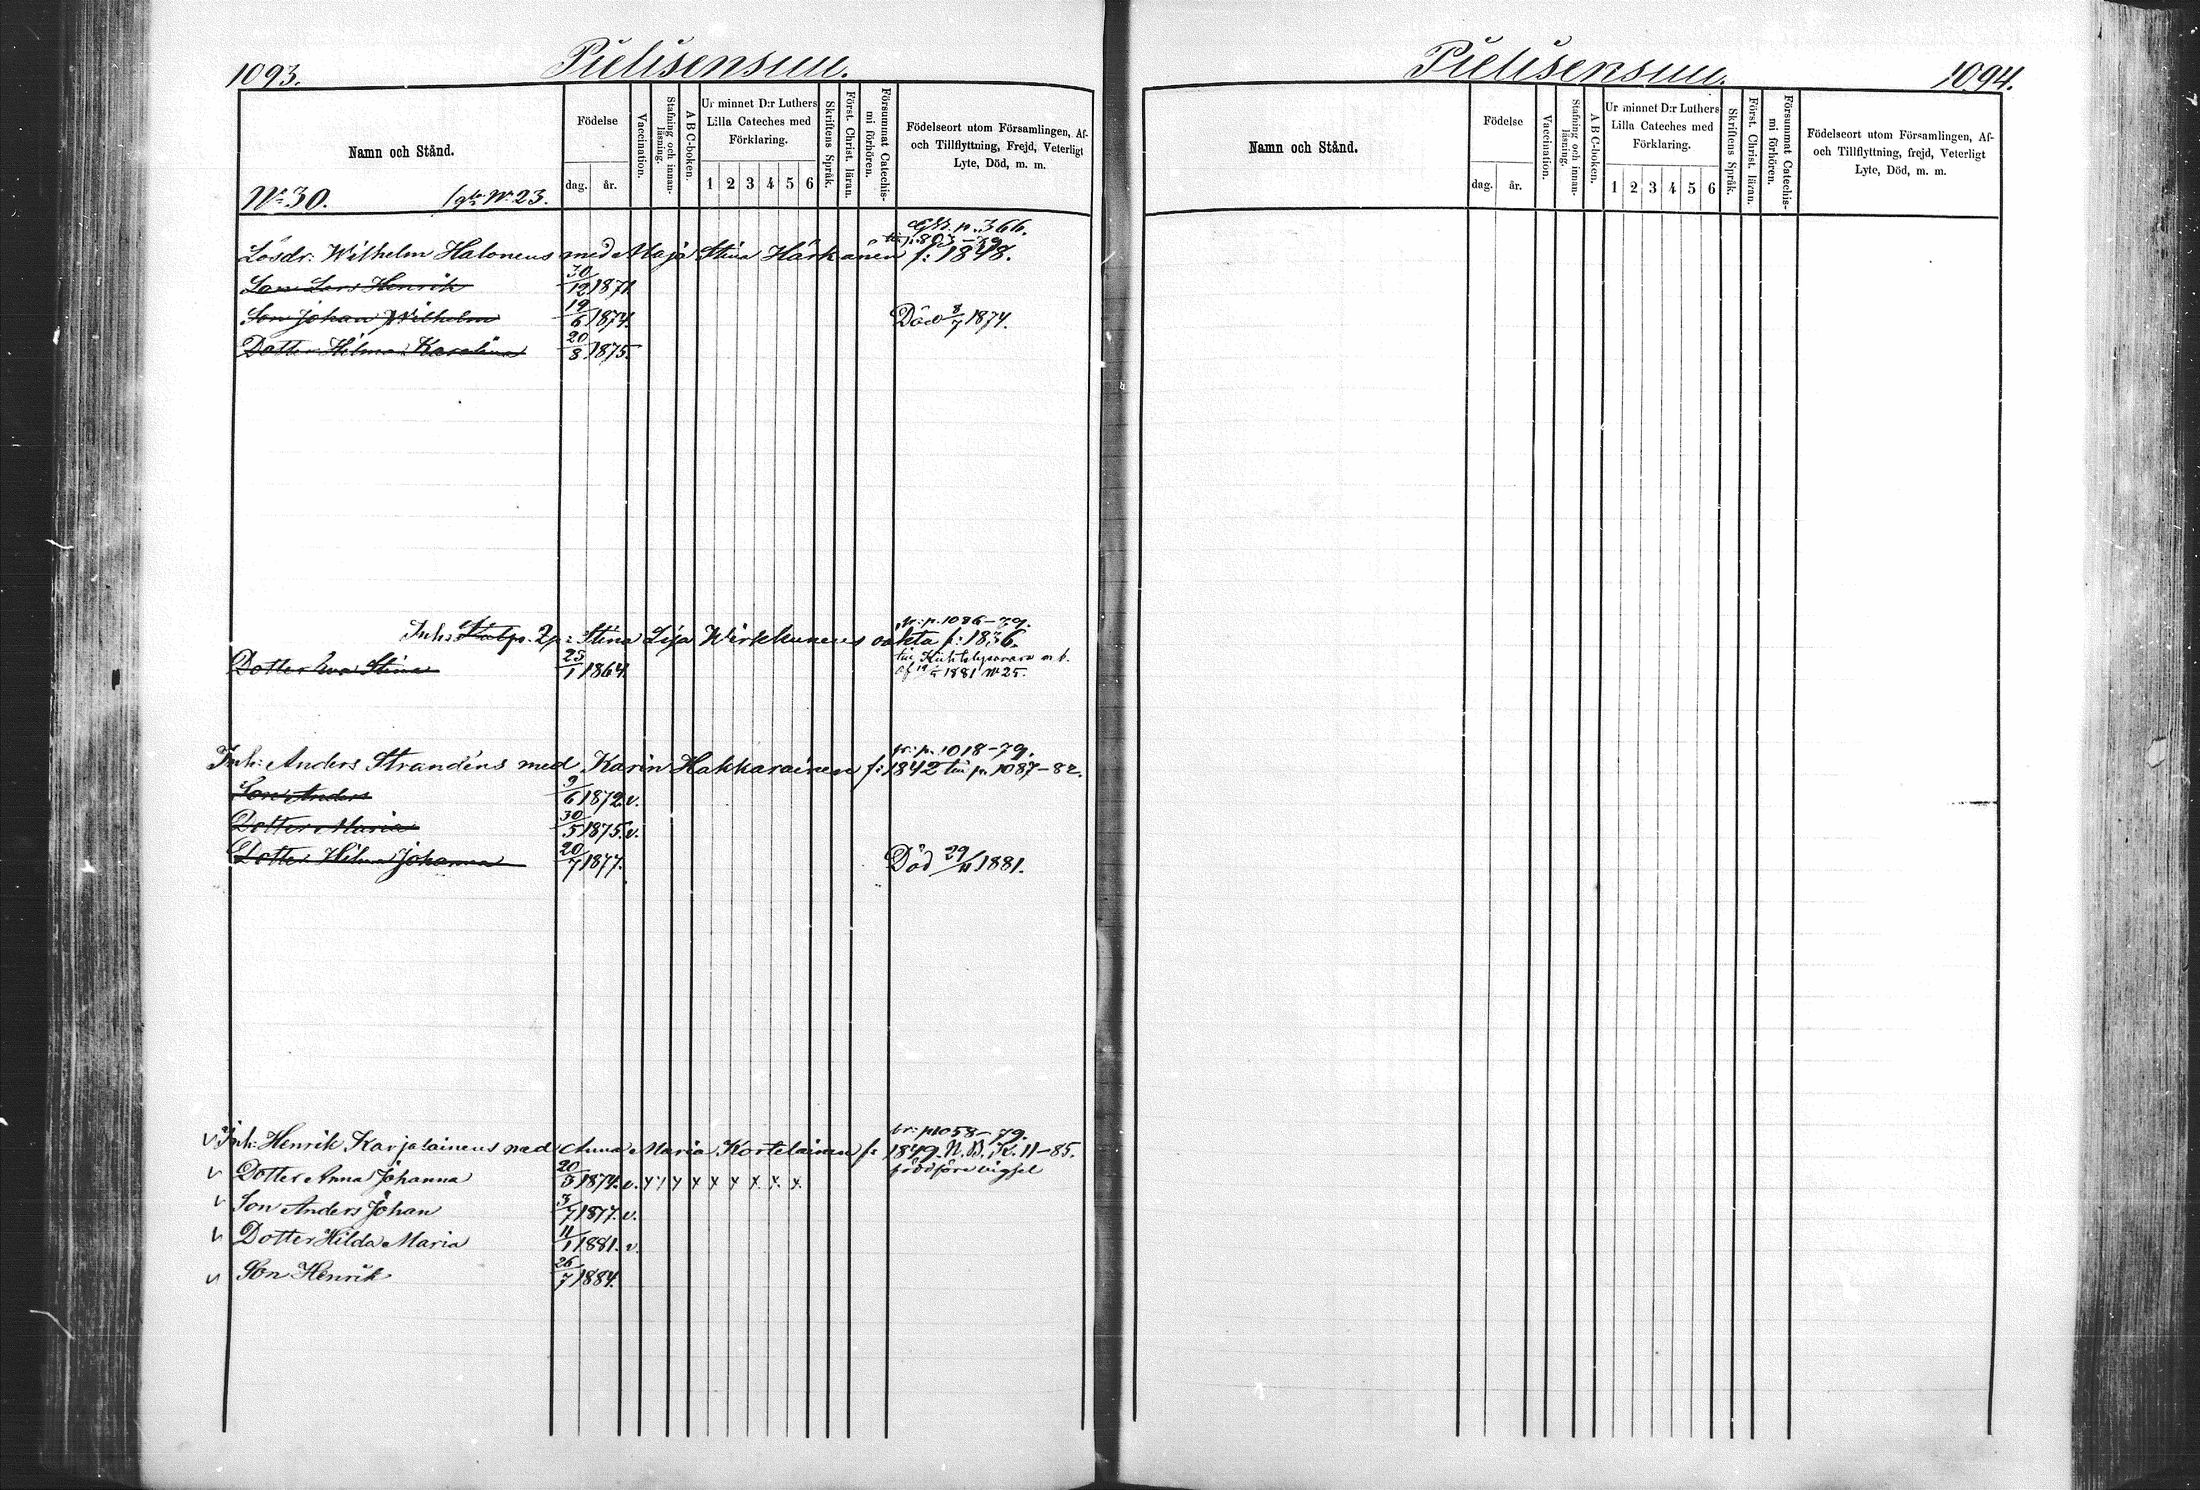 1093.
Pielisensuu.
Namn och Stånd.
Födelse
dag. år.
Vaccination.
Stafning och innanläsning.
A B C-boken.
Ur minnet D:r Luthers
Lilla Cateches med
Förklaring.
1 2 3 4 5 6
Skriftens Språk.
Först. Christ. läran.
Försummat Catechismi förhören.
Födelseort utom Församlingen, Af-
och Tillflyttning, Frejd, Veterligt
Lyte, Död, m. m.
No 30. No 23.
p. 366.
p. 803-79
Lösdr: Wilhelm Halonens med Maja Stina Härkänen f: 1848.
Son Lars Henrik 30/12 1871.
Son Johan Wilhelm 19/6 1874. Död 8/7 1874.
Dotter Hilma Karolina 20/8 1875.
fr: p. 1086-79.
Inh: Stina Lisa Wirkkunens oäkta f: 1836.
Dotter Eva Stina 25/1 1864. till Kiihtelysvaara m b.
af 19/5 1881 No 25.
fr: p. 1018-79.
Inh: Anders Strandéns med Karin Hakkarainen f: 1842 till p. 1087-82.
Son Anders 9/6 1872. v.
Dotter Maria 30/5 1875. v.
Dotter Hilma Johanna 20/7 1877. Död 29/11 1881.
fr: p 1058-79.
v Inh: Henrik Karjalainens med Anna Maria Kortelainen f: 1849. N. B. K. 11-85.
v Dotter Anna Johanna 20/5 1874. v. x x x x x x x x x född före vigsel
v Son Anders Johan 3/7 1877. v.
v Dotter Hilda Maria 11/1 1881. v.
v Son Henrik 26/7 1884.
Pielisensuu.
1094.
Namn och Stånd.
Födelse
dag. år.
Vaccination.
Stafning och innanläsning.
A B C-boken.
Ur minnet D:r Luthers
Lilla Cateches med
Förklaring.
1 2 3 4 5 6
Skriftens Språk.
Först. Christ. läran.
Försummat Catechismi förhören.
Födelseort utom Församlingen, Af-
och Tillflyttning, frejd, Veterligt
Lyte, Död, m. m.